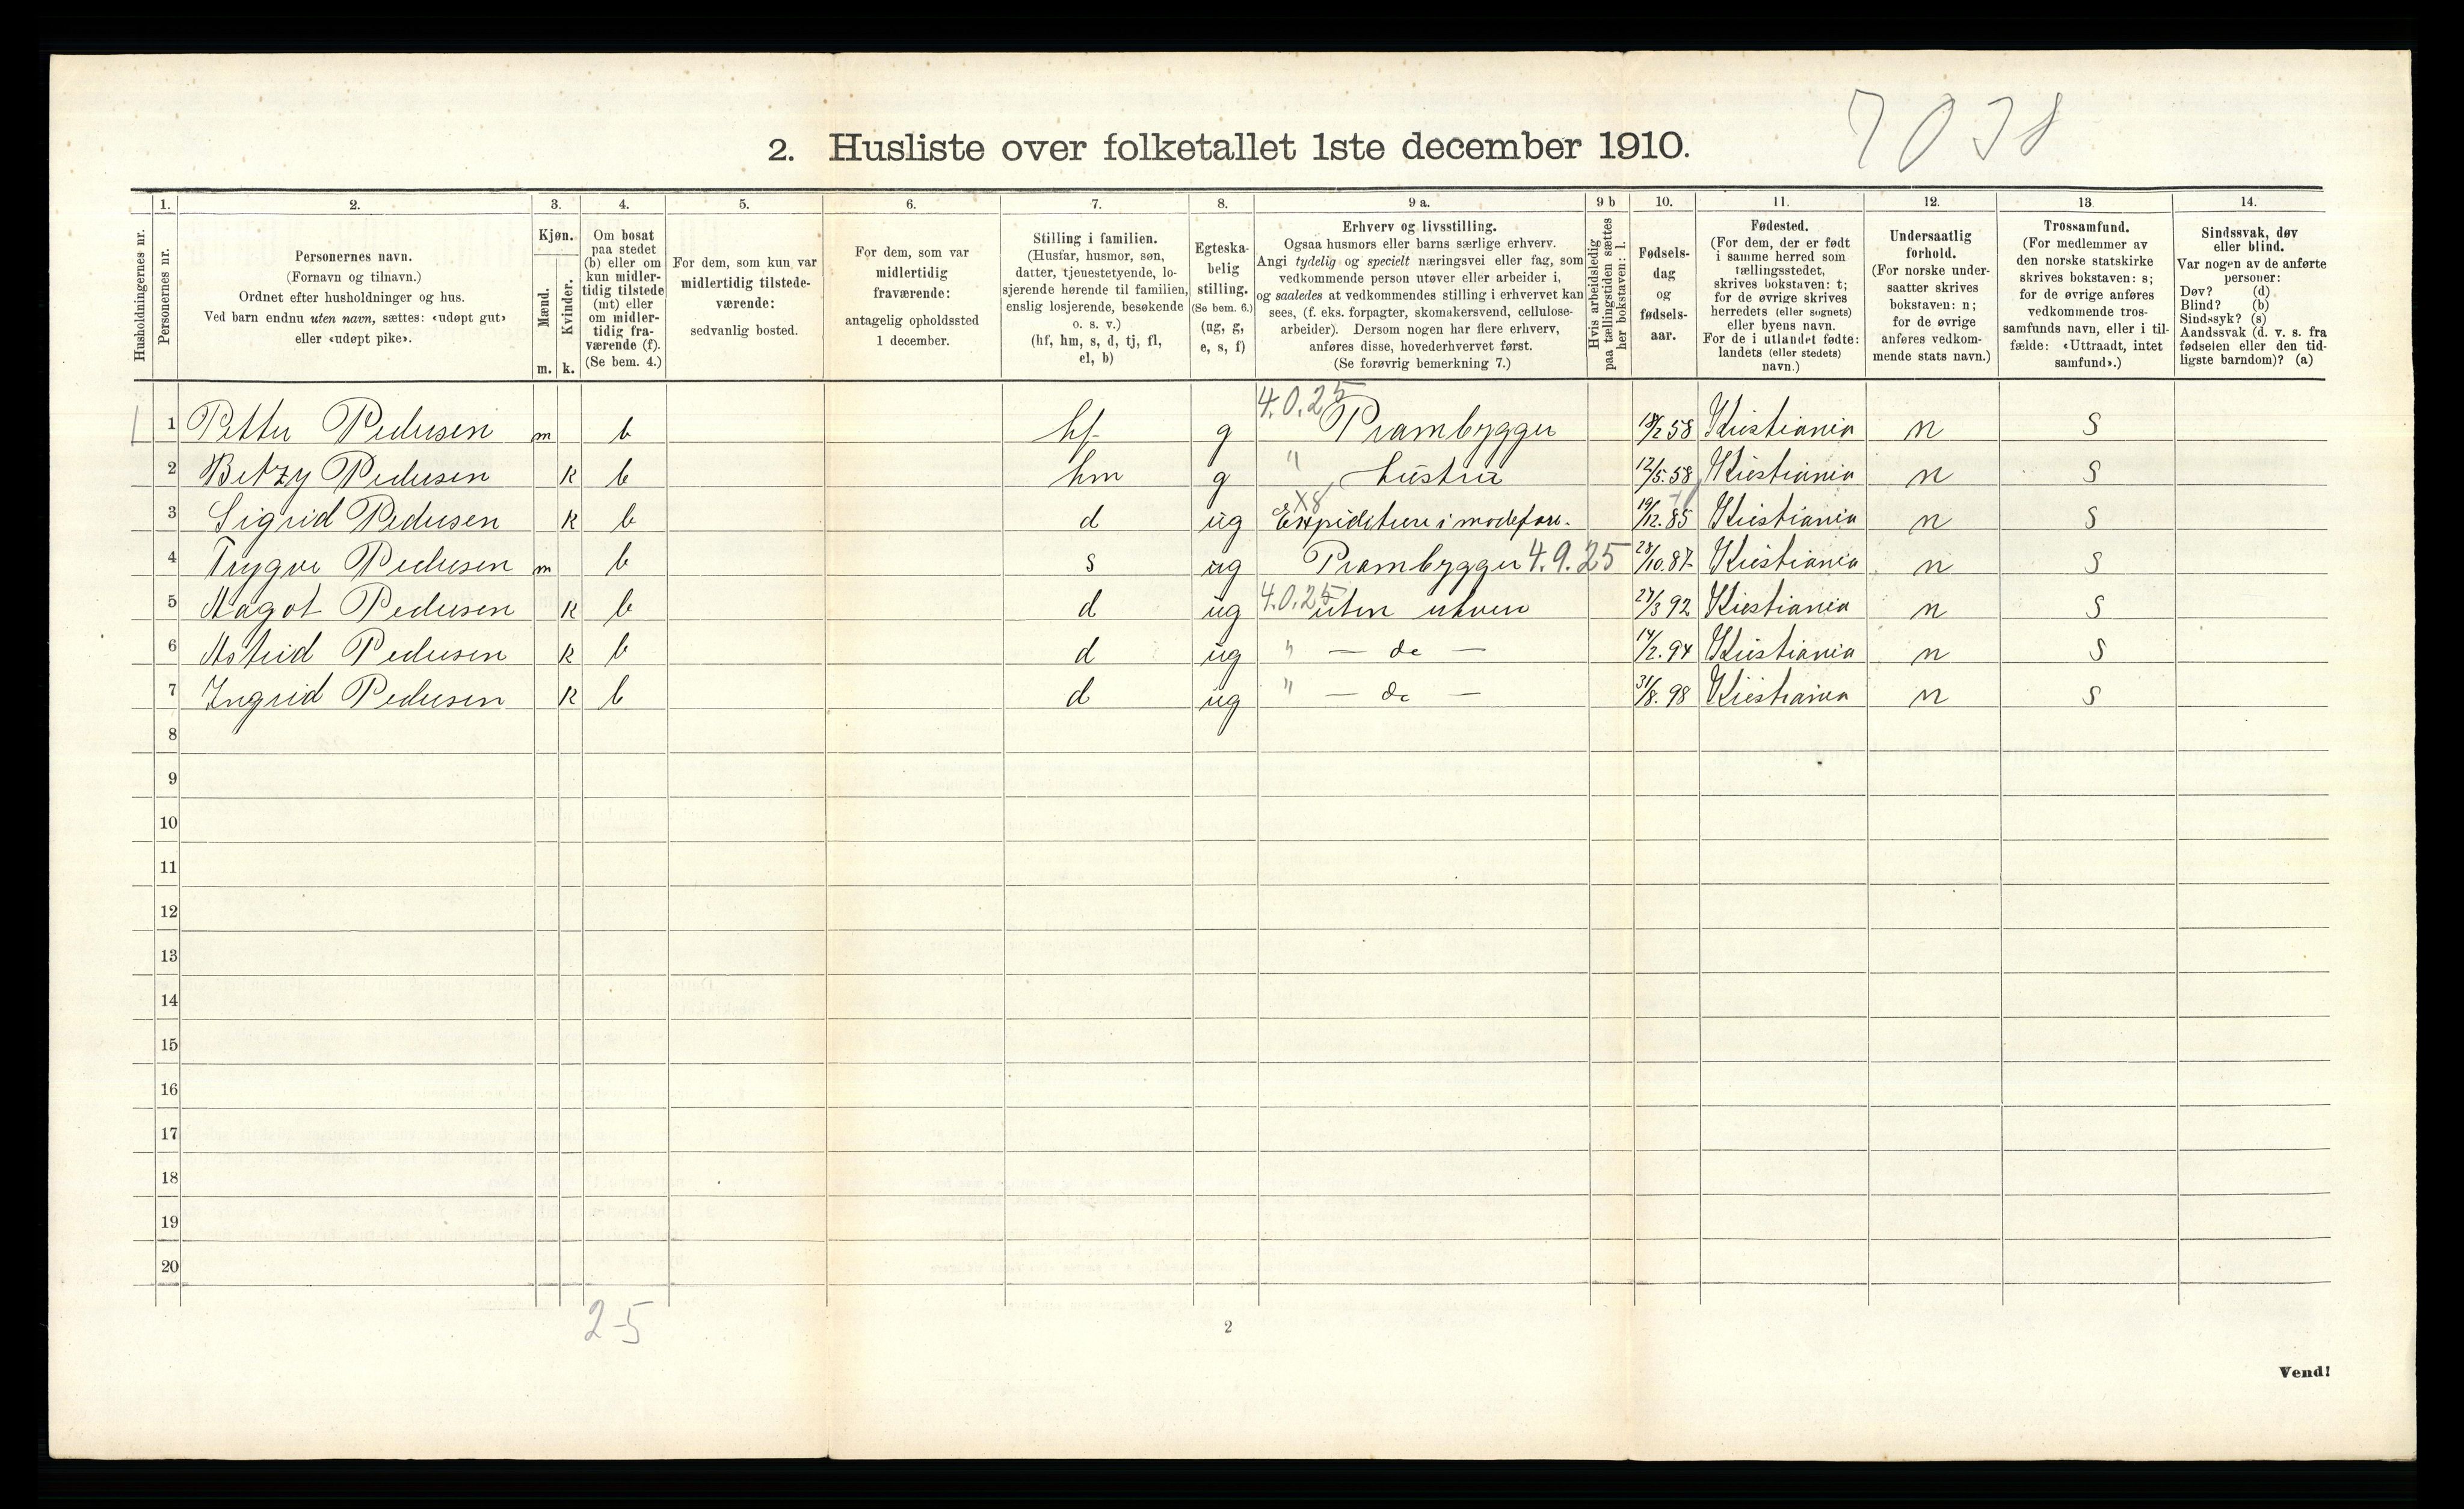 2. Husliste over folketallet 1ste december 1910.
7038
Husholdningernes nr.
1. Personernes nr.
2. Personernes navn.
(Fornavn og tilnavn.)
Ordnet efter husholdninger og hus.
Ved barn endnu uten navn, sættes: «udøpt gut»
eller «udøpt pike».
3. Kjøn.
Mænd. Kvinder.
m. k.
4. Om bosat
paa stedet
(b) eller om
kun midler-
tidig tilstede
(mt) eller
om midler-
tidig fra-
værende (f).
(Se bem. 4.)
5. For dem, som kun var
midlertidig tilstede-
værende:
sedvanlig bosted.
6. For dem, som var
midlertidig
fraværende:
antagelig opholdssted
1 december.
7. Stilling i familien.
(Husfar, husmor, søn,
datter, tjenestetyende, lo-
sjerende hørende til familien,
enslig losjerende, besøkende
o. s. v.)
(hf, hm, s, d, tj, fl,
el, b)
8. Egteska-
belig
stilling.
(Se bem. 6.)
(ug, g,
e, s, f)
9 a. Erhverv og livsstilling.
Ogsaa husmors eller barns særlige erhverv.
Angi tydelig og specielt næringsvei eller fag, som
vedkommende person utøver eller arbeider i,
og saaledes at vedkommendes stilling i erhvervet kan
sees, (f. eks. forpagter, skomakersvend, cellulose-
arbeider). Dersom nogen har flere erhverv,
anføres disse, hovederhvervet først.
(Se forøvrig bemerkning 7.)
9 b Hvis arbeidsledig
paa tællingstiden sættes
her bokstaven: l.
10. Fødsels-
dag
og
fødsels-
aar.
11. Fødested.
(For dem, der er født
i samme herred som
tællingsstedet,
skrives bokstaven: t;
for de øvrige skrives
herredets (eller sognets)
eller byens navn.
For de i utlandet fødte:
landets (eller stedets)
navn.)
12. Undersaatlig
forhold.
(For norske under-
saatter skrives
bokstaven: n;
for de øvrige
anføres vedkom-
mende stats navn.)
13. Trossamfund.
(For medlemmer av
den norske statskirke
skrives bokstaven: s;
for de øvrige anføres
vedkommende tros-
samfunds navn, eller i til-
fælde: «Uttraadt, intet
samfund».)
14. Sindssvak, døv
eller blind.
Var nogen av de anførte
personer:
Døv? (d)
Blind? (b)
Sindssyk? (s)
Aandssvak (d. v. s. fra
fødselen eller den tid-
ligste barndom)? (a)
4.0.25
1 1 Petter Pedersen m b hf g Prambygger 18/2 58 Kristiania n S
2 Betzy Pedersen K b hm g " hustru 12/5.58 Kristiania n S
X8
3 Sigrid Pedersen K b d ug Expiditere i modefore. 19/12.85 Kristiania n S
4 Trygve Pedersen m b s ug Prambygger 4.9.25 28/10.87 Kristiania n S
5 Aagot Pedersen K b d ug 4.0.25 uten erhverv 27/3 92 Kristiania n S
6 Astrid Pedersen K b d ug " — do — 14/2.94 Kristiania n S
7 Ingrid Pedersen K b d ug " — do — 31/8.98 Kristiania n S
8
9
10
11
12
13
14
15
16
17
18
19
20
2-5
2
Vend!